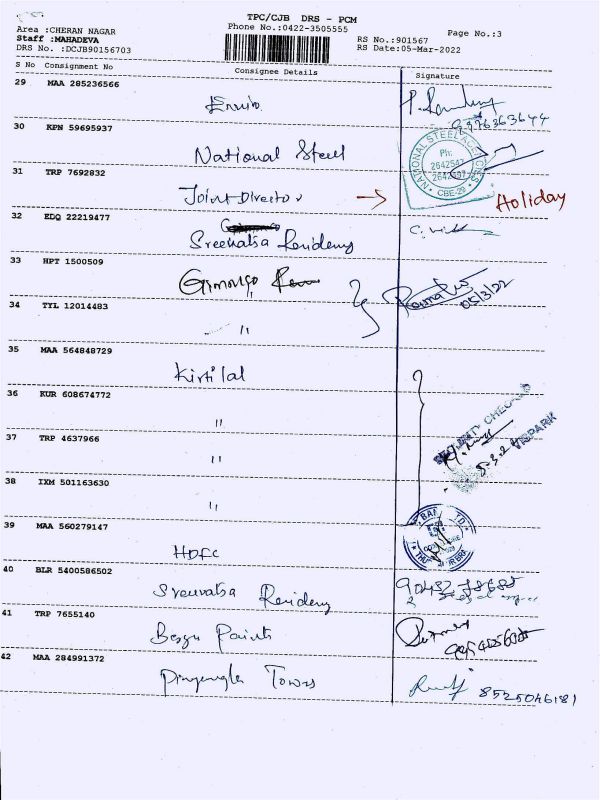 TPC/CJB DRS - PCM
Area :CHERAN NAGAR
Phone No.:0422-3505555
Page No.:3
Staff :MAHADEVA
RS No.:901567
DRS No. :DCJB90156703
RS Date:05-Mar-2022
S No Consignment No Consignee Details Signature
29 MAA 285236566
9976363644
30 KPN 59695937
National Steel
NATIONAL STEEL
Ph:
2642547
CBE-29
31 TRP 7692832
Joint Director → Holiday
32 EDQ 22219477
Sreevatsa Residency
33 HPT 1500509
05/3/22
34 TYL 12014483
"
35 MAA 564848729
Kirtilal
36 KUR 608674772
"
37 TRP 4637966
"
38 IXM 501163630
"
39 MAA 560279147
HDFC
40 BLR 5400586502
Sreevatsa Residency
41 TRP 7655140
Paints
42 MAA 284991372
Towers
8525046181